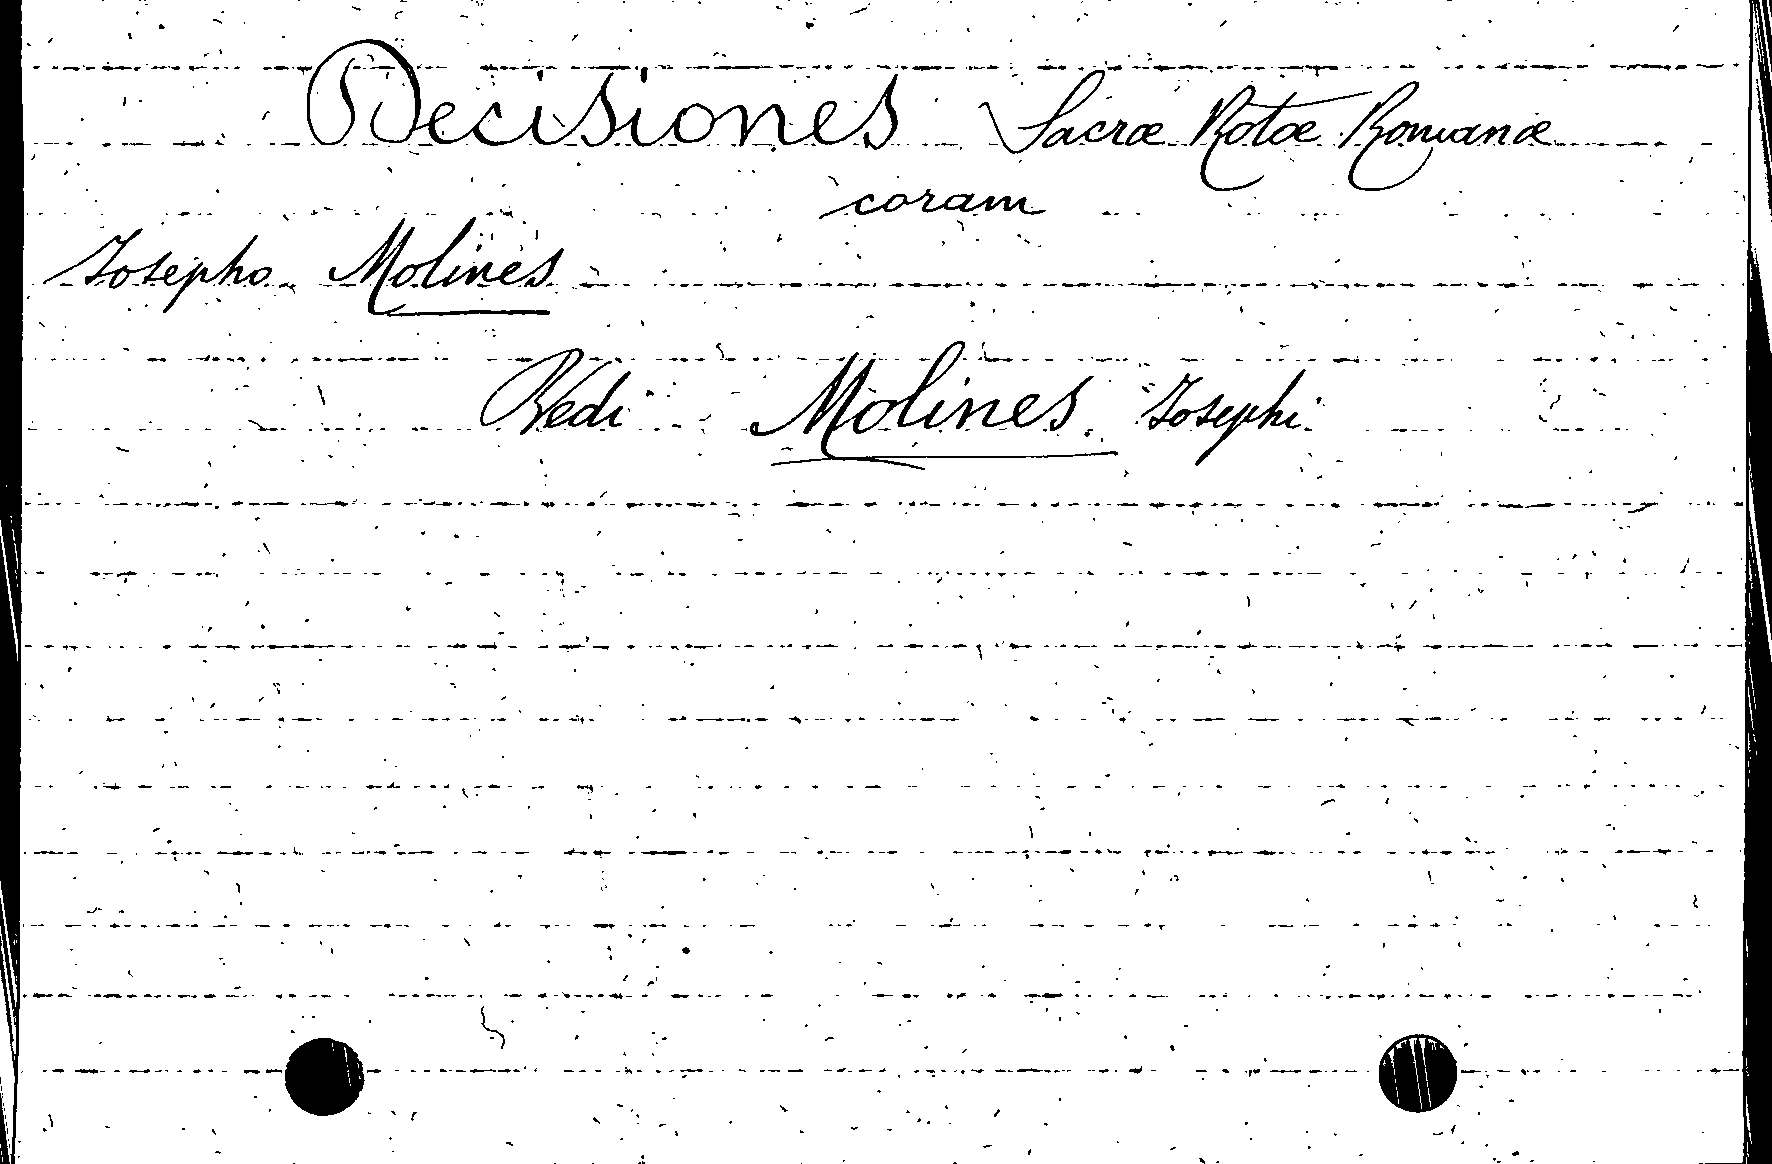 Decisiones Sacræ Rotæ Romanæ
coram
Josepho Molines
Vedi Molines. Josephi